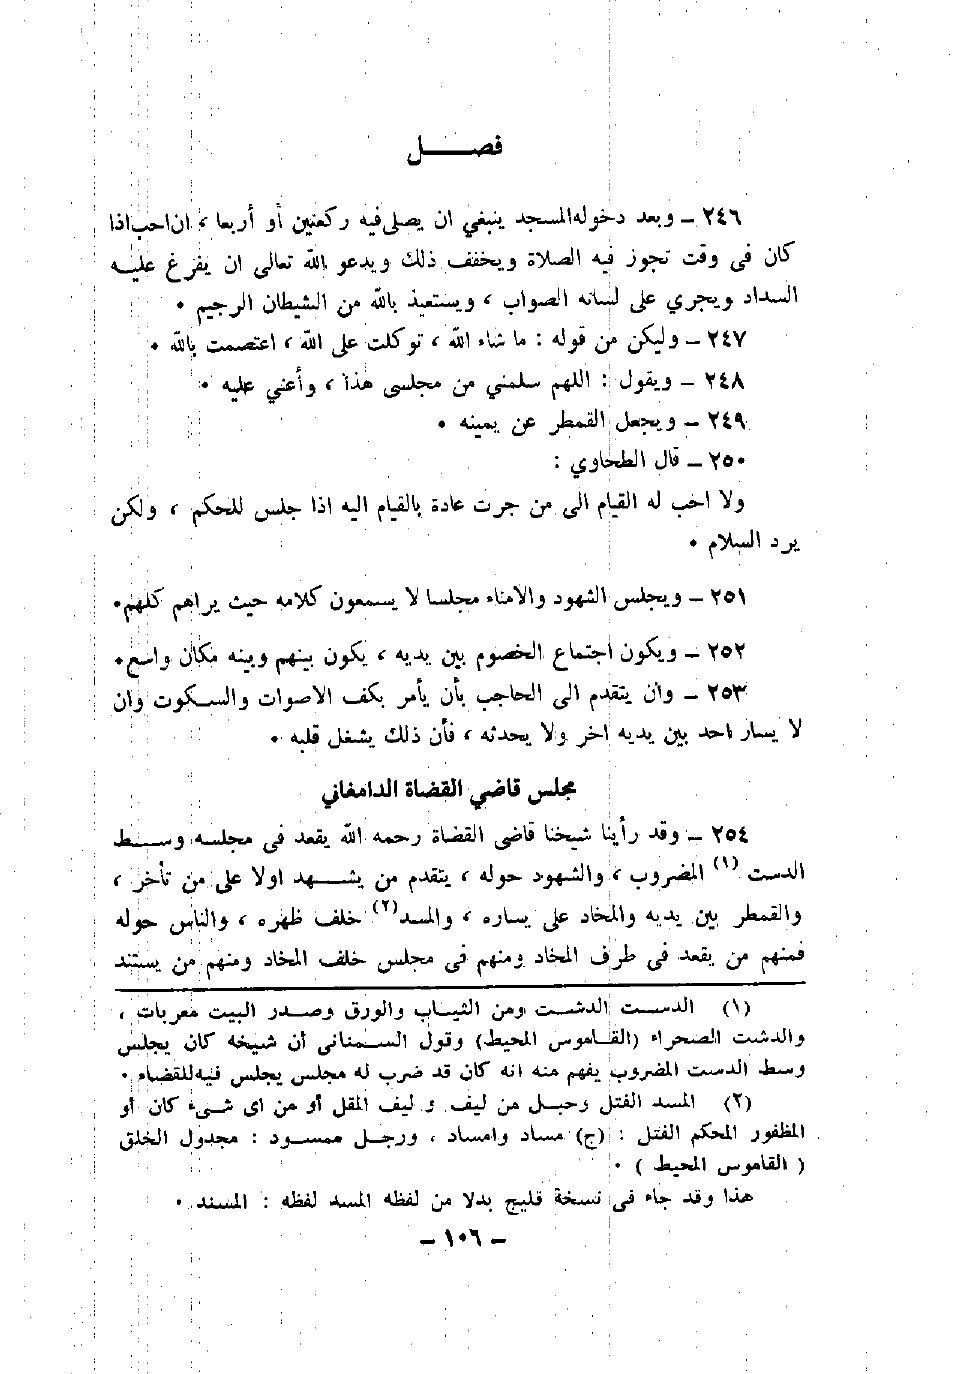 فصـــــل
٢٤٦ ـ وبعد دخوله المسجد ينبغي ان يصلى فيه ركعتين أو أربعا ، ان احب اذا
كان فى وقت تجوز فيه الصلاة ويخفف ذلك ويدعو الله تعالى ان يفرغ عليـه
السداد ويجري على لسانه الصواب ، ويستعيذ بالله من الشيطان الرجيم ٠
٢٤٧ ـ وليكن من قوله : ما شاء الله ، توكلت على الله ، اعتصمت بالله ٠
٢٤٨ ـ ويقول : اللهم سلمني من مجلسى هذا ، وأعني عليه ٠
٢٤٩ ـ ويجعل القمطر عن يمينه ٠
٢٥٠ ـ قال الطحاوي :
ولا احب له القيام الى من جرت عادة بالقيام اليه اذا جلس للحكم ، ولكن
يرد السلام ٠
٢٥١ ـ ويجلس الشهود والامناء مجلسا لا يسمعون كلامه حيث يراهم كلهم٠
٢٥٢ ـ ويكون اجتماع الخصوم بين يديه ، يكون بينهم وبينه مكان واسع٠
٢٥٣ ـ وان يتقدم الى الحاجب بأن يأمر بكف الاصوات والسـكوت وان
لا يسار احد بين يديه اخر ولا يحدثه ، فأن ذلك يشغل قلبه ٠
مجلس قاضي القضاة الدامغاني
٢٥٤ ـ وقد رأينا شيخنا قاضى القضاة رحمه الله يقعد فى مجلسه وسـط
الدست (١) المضروب ، والشهود حوله ، يتقدم من يشـهد اولا على من تأخر ،
والقمطر بين يديه والمخاد على يساره ، والمسد(٢) خلف ظهره ، والناس حوله
فمنهم من يقعد فى طرف المخاد ومنهم فى مجلس خلف المخاد ومنهم من يستند
(١) الدسـت الدشـت ومن الثيـاب والورق وصـدر البيت معربات ،
والدشت الصحراء (القـاموس المحيط) وقول السـمنانى أن شيخه كان يجلس
وسط الدست المضروب يفهم منه انه كان قد ضرب له مجلس يجلس فيه للقضاء ٠
(٢) المسد الفتل وحبـل من ليف و ليف المقل أو من اى شـىء كان أو
المظفور المحكم الفتل : (ج) مساد وامساد ، ورجـل ممسـود : مجدول الخلق
( القاموس المحيط ) ٠
هذا وقد جاء فى نسخة قليج بدلا من لفظه المسد لفظه : المسند ٠
ـ ١٠٦ ـ